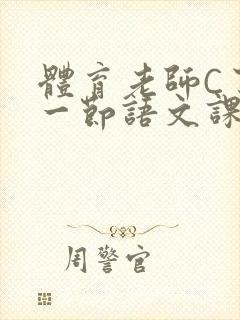 體育老師C
一節語文課
周警官